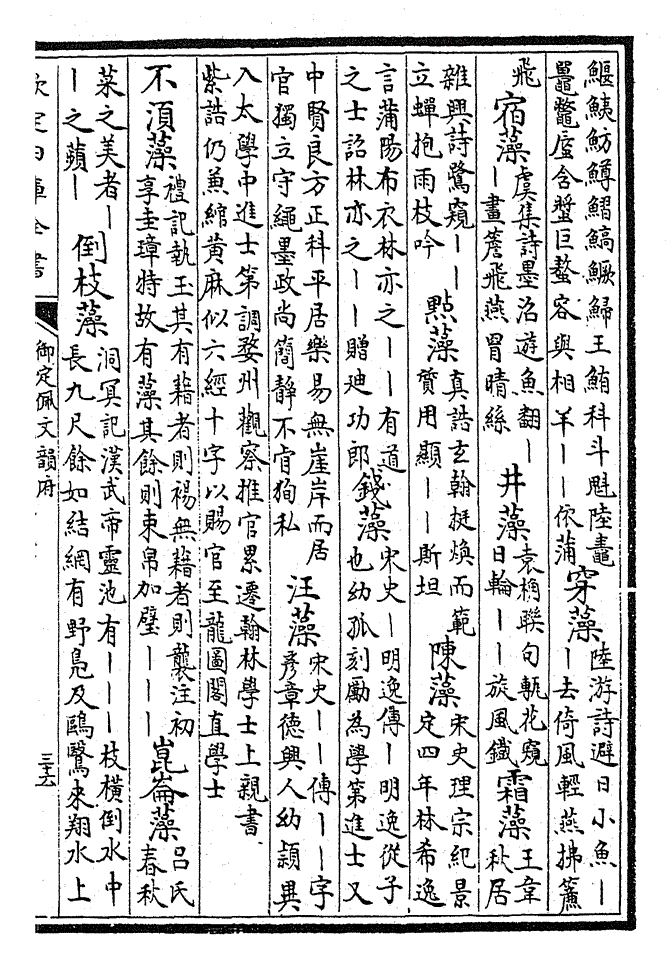 鰋鮧魴鱒鰼鰝鱖鯞王鮪科斗魁陸鼃
鼉鼈蜃含蟹巨螯容與相羊丨丨依蒲
穿藻
陸游詩避日小魚丨
丨去倚風輕燕拂簾
飛
宿藻
虞集詩墨沼游魚翻丨
丨畫簷飛燕罥晴絲
井藻
袁桷聯句甃花窺
日輪丨丨旋風鐵
霜藻
王韋
秋居
雜興詩鷺窺丨丨
立蟬抱雨枝吟
點藻
真誥玄翰挺煥而範
質用顯丨丨斯坦
陳藻
宋史理宗紀景
定四年林希逸
言蒲陽布衣林亦之丨丨有道
之士詔林亦之丨丨贈廸功郎
錢藻
宋史丨明逸傳丨明逸從子
也幼孤刻勵為學第進士又
中賢良方正科平居樂易無崖岸而居
官獨立守繩墨政尚簡靜不肎狥私
汪藻
宋史丨丨傳丨丨字
彥章德興人幼穎異
入太學中進士第調婺州觀察推官累遷翰林學士上親書
紫誥仍兼綰黃麻似六經十字以賜官至龍圖閣直學士
不湏藻
禮記執玉其有藉者則裼無藉者則襲注初
享圭璋特故有藻其餘則束帛加璧丨丨丨
崑崙藻
呂氏
春秋
菜之美者丨
丨之蘋丨
倒枝藻
洞冥記漢武帝靈池有丨丨丨枝橫倒水中
長九尺餘如結網有野鳧及鷗鷖來翔水上
欽定四庫全書
御定佩文韻府
三十六